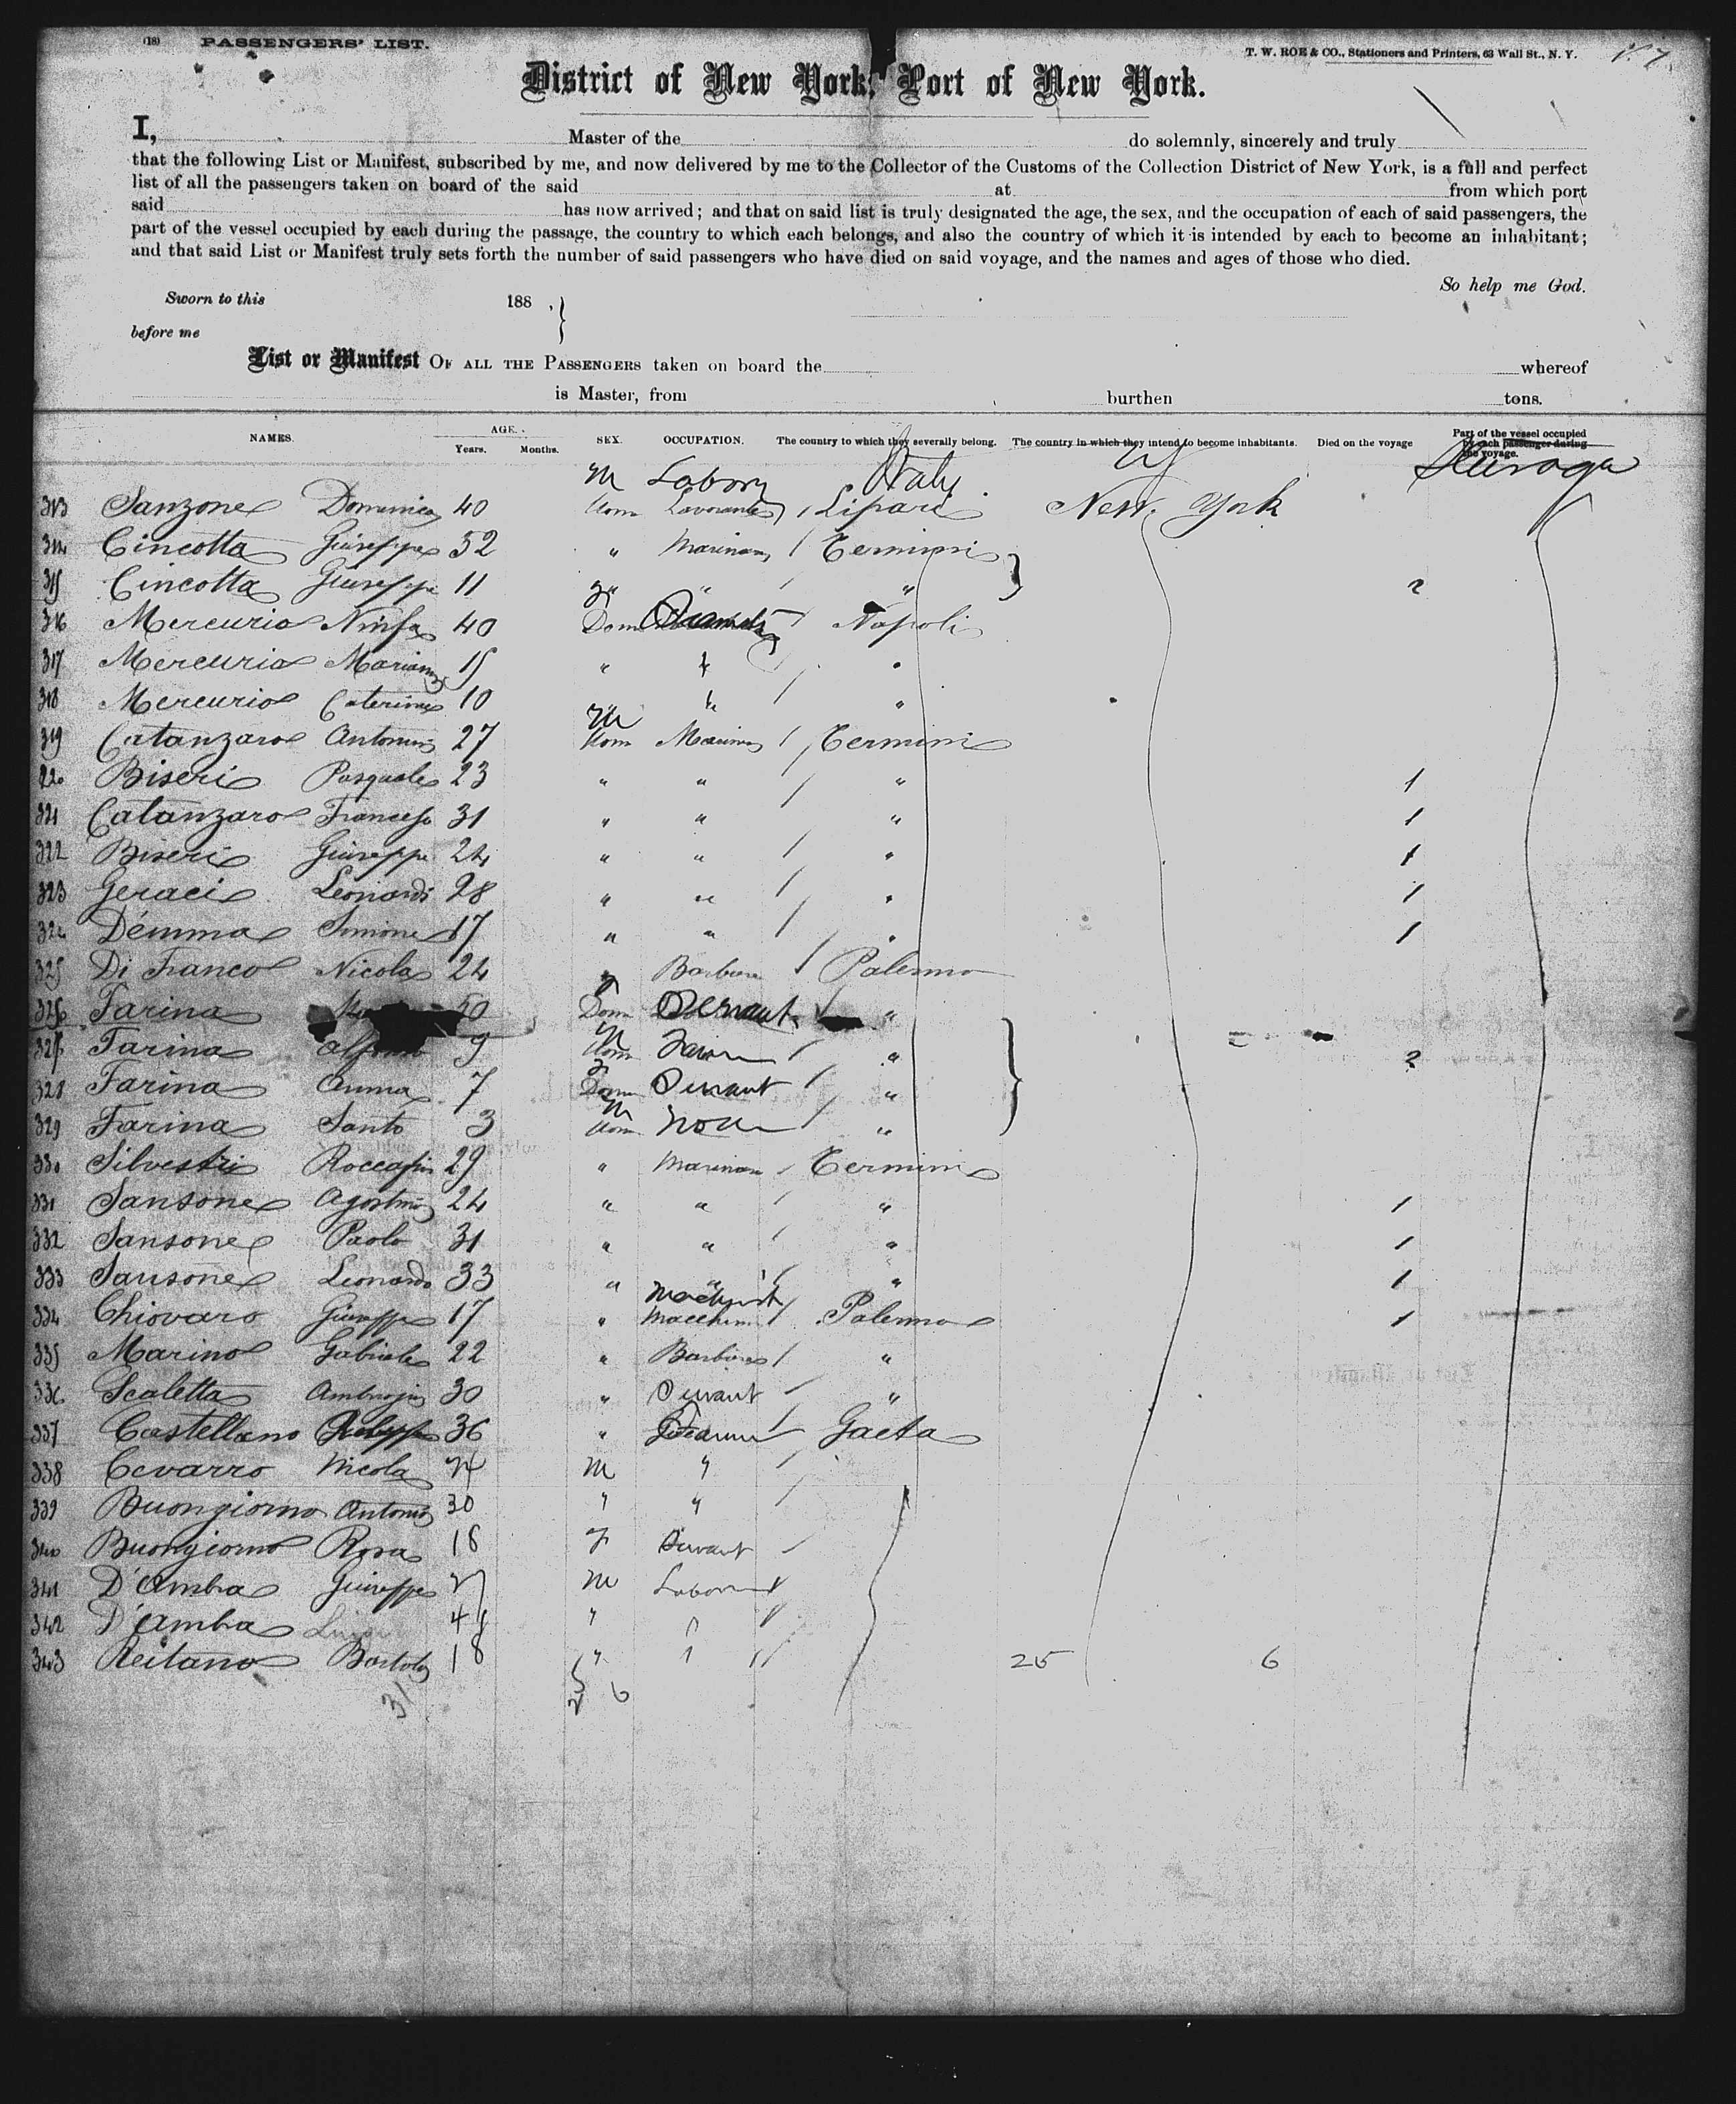 (18) PASSENGERS' LIST.
T. W. ROE & CO., Stationers and Printers, 63 Wall St., N. Y.
District of New York, Port of New York.
I, Master of the do solemnly, sincerely and truly
that the following List or Manifest, subscribed by me, and now delivered by me to the Collector of the Customs of the Collection District of New York, is a full and perfect
list of all the passengers taken on board of the said at from which port
said has now arrived; and that on said list is truly designated the age, the sex, and the occupation of each of said passengers, the
part of the vessel occupied by each during the passage, the country to which each belongs, and also the country of which it is intended by each to become an inhabitant;
and that said List or Manifest truly sets forth the number of said passengers who have died on said voyage, and the names and ages of those who died.
So help me God.
Sworn to this 188 ,
before me
List or Manifest OF ALL THE PASSENGERS taken on board the whereof
is Master, from burthen tons.
NAMES. AGE. Years. Months. SEX. OCCUPATION. The country to which they severally belong. The country in which they intend to become inhabitants. Died on the voyage Part of the vessel occupied by each passenger during the voyage.
M Italy
313 Sanzone 40 Uom / Lipari New York
314 Cincotta Giuseppe 52 " / Termini
315 Cincotta Giuseppe 11 " / " 2
316 Mercurio Ninfa 40 / Napoli
317 Mercurio 15 " / "
318 Mercurio Caterina 10 " / "
M
319 Catanzaro Antonino 27 Uom / Termini
320 Biseri Pasquale 23 " " / " 1
321 Catanzaro 31 " " " 1
322 Biseri Giuseppe 24 " " / " 1
323 Geraci Leonardo 28 " " / " 1
324 Demma Simone 17 " " / " 1
325 Di Franco Nicola 24 " / Palermo
326 Farina 50 Servant "
M
327 Farina Alfonso 9 Uom / " 2
328 Farina Anna 7 Servant / "
M
329 Farina Santo 3 Uom / "
330 Silvestri 29 " / Termini
331 Sansone Agostino 24 " " / " 1
332 Sansone Paolo 31 " " / " 1
333 Sansone Leonardo 33 " " / " 1
334 Chiovaro Giuseppe 17 " / Palermo 1
335 Marino Gabriele 22 " Barbiere / "
336 Scaletta 30 " Servant / "
337 Castellano 36 " / Gaeta
338 Cevarro Nicola M " /
339 Buongiorno Antonio 30 " " /
340 Buongiorno Rosa 18 F Servant
341 D'Ambra Giuseppe 27 M
342 D'Ambra "
343 Reitano 18 " 25 6
31 6